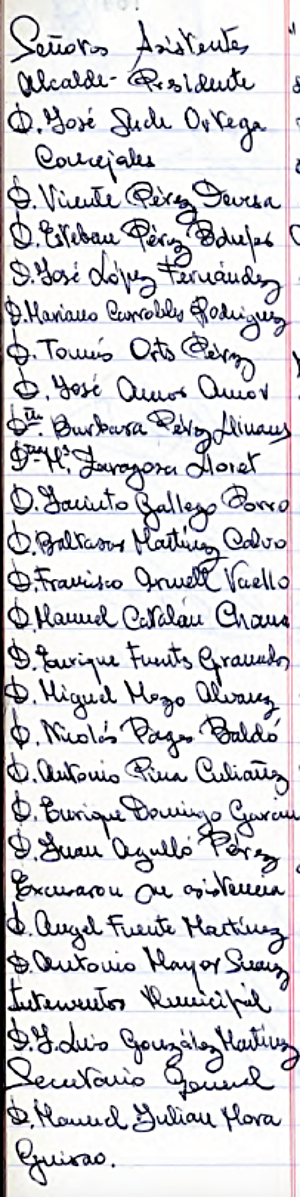 Señores Asistentes
Alcalde-Presidente
D. José Such Ortega
Concejales
D. Vicente Pérez Devesa
D. Esteban Pérez
D. José López Fernández
D. Mariano Carrobles Rodriguez
D. Tomás Orts Pérez
D. José Amor Amor
Dña. Barbara Pérez Llinares
Dña Mª Zaragoza Lloret
D. Jacinto Gallego Porro
D. Baltasar Martinez Calvo
D. Francisco Vaello
D. Manuel Catalán Chana
D. Enrique Fuentes Granados
D. Miguel Mozo Alvarez
D. Nicolás Pages Baldó
D. Antonio Pina Culiañez
D. Enrique Domingo Garcia
D. Juan Agulló Pérez
Excusaron su asistencia
D. Angel Fuente Martínez
D. Antonio Mayor Suarez
Interventor Municipal
D. J. Luis González Martinez
Secretario General
D. Manuel Julian Mora
Guirao.